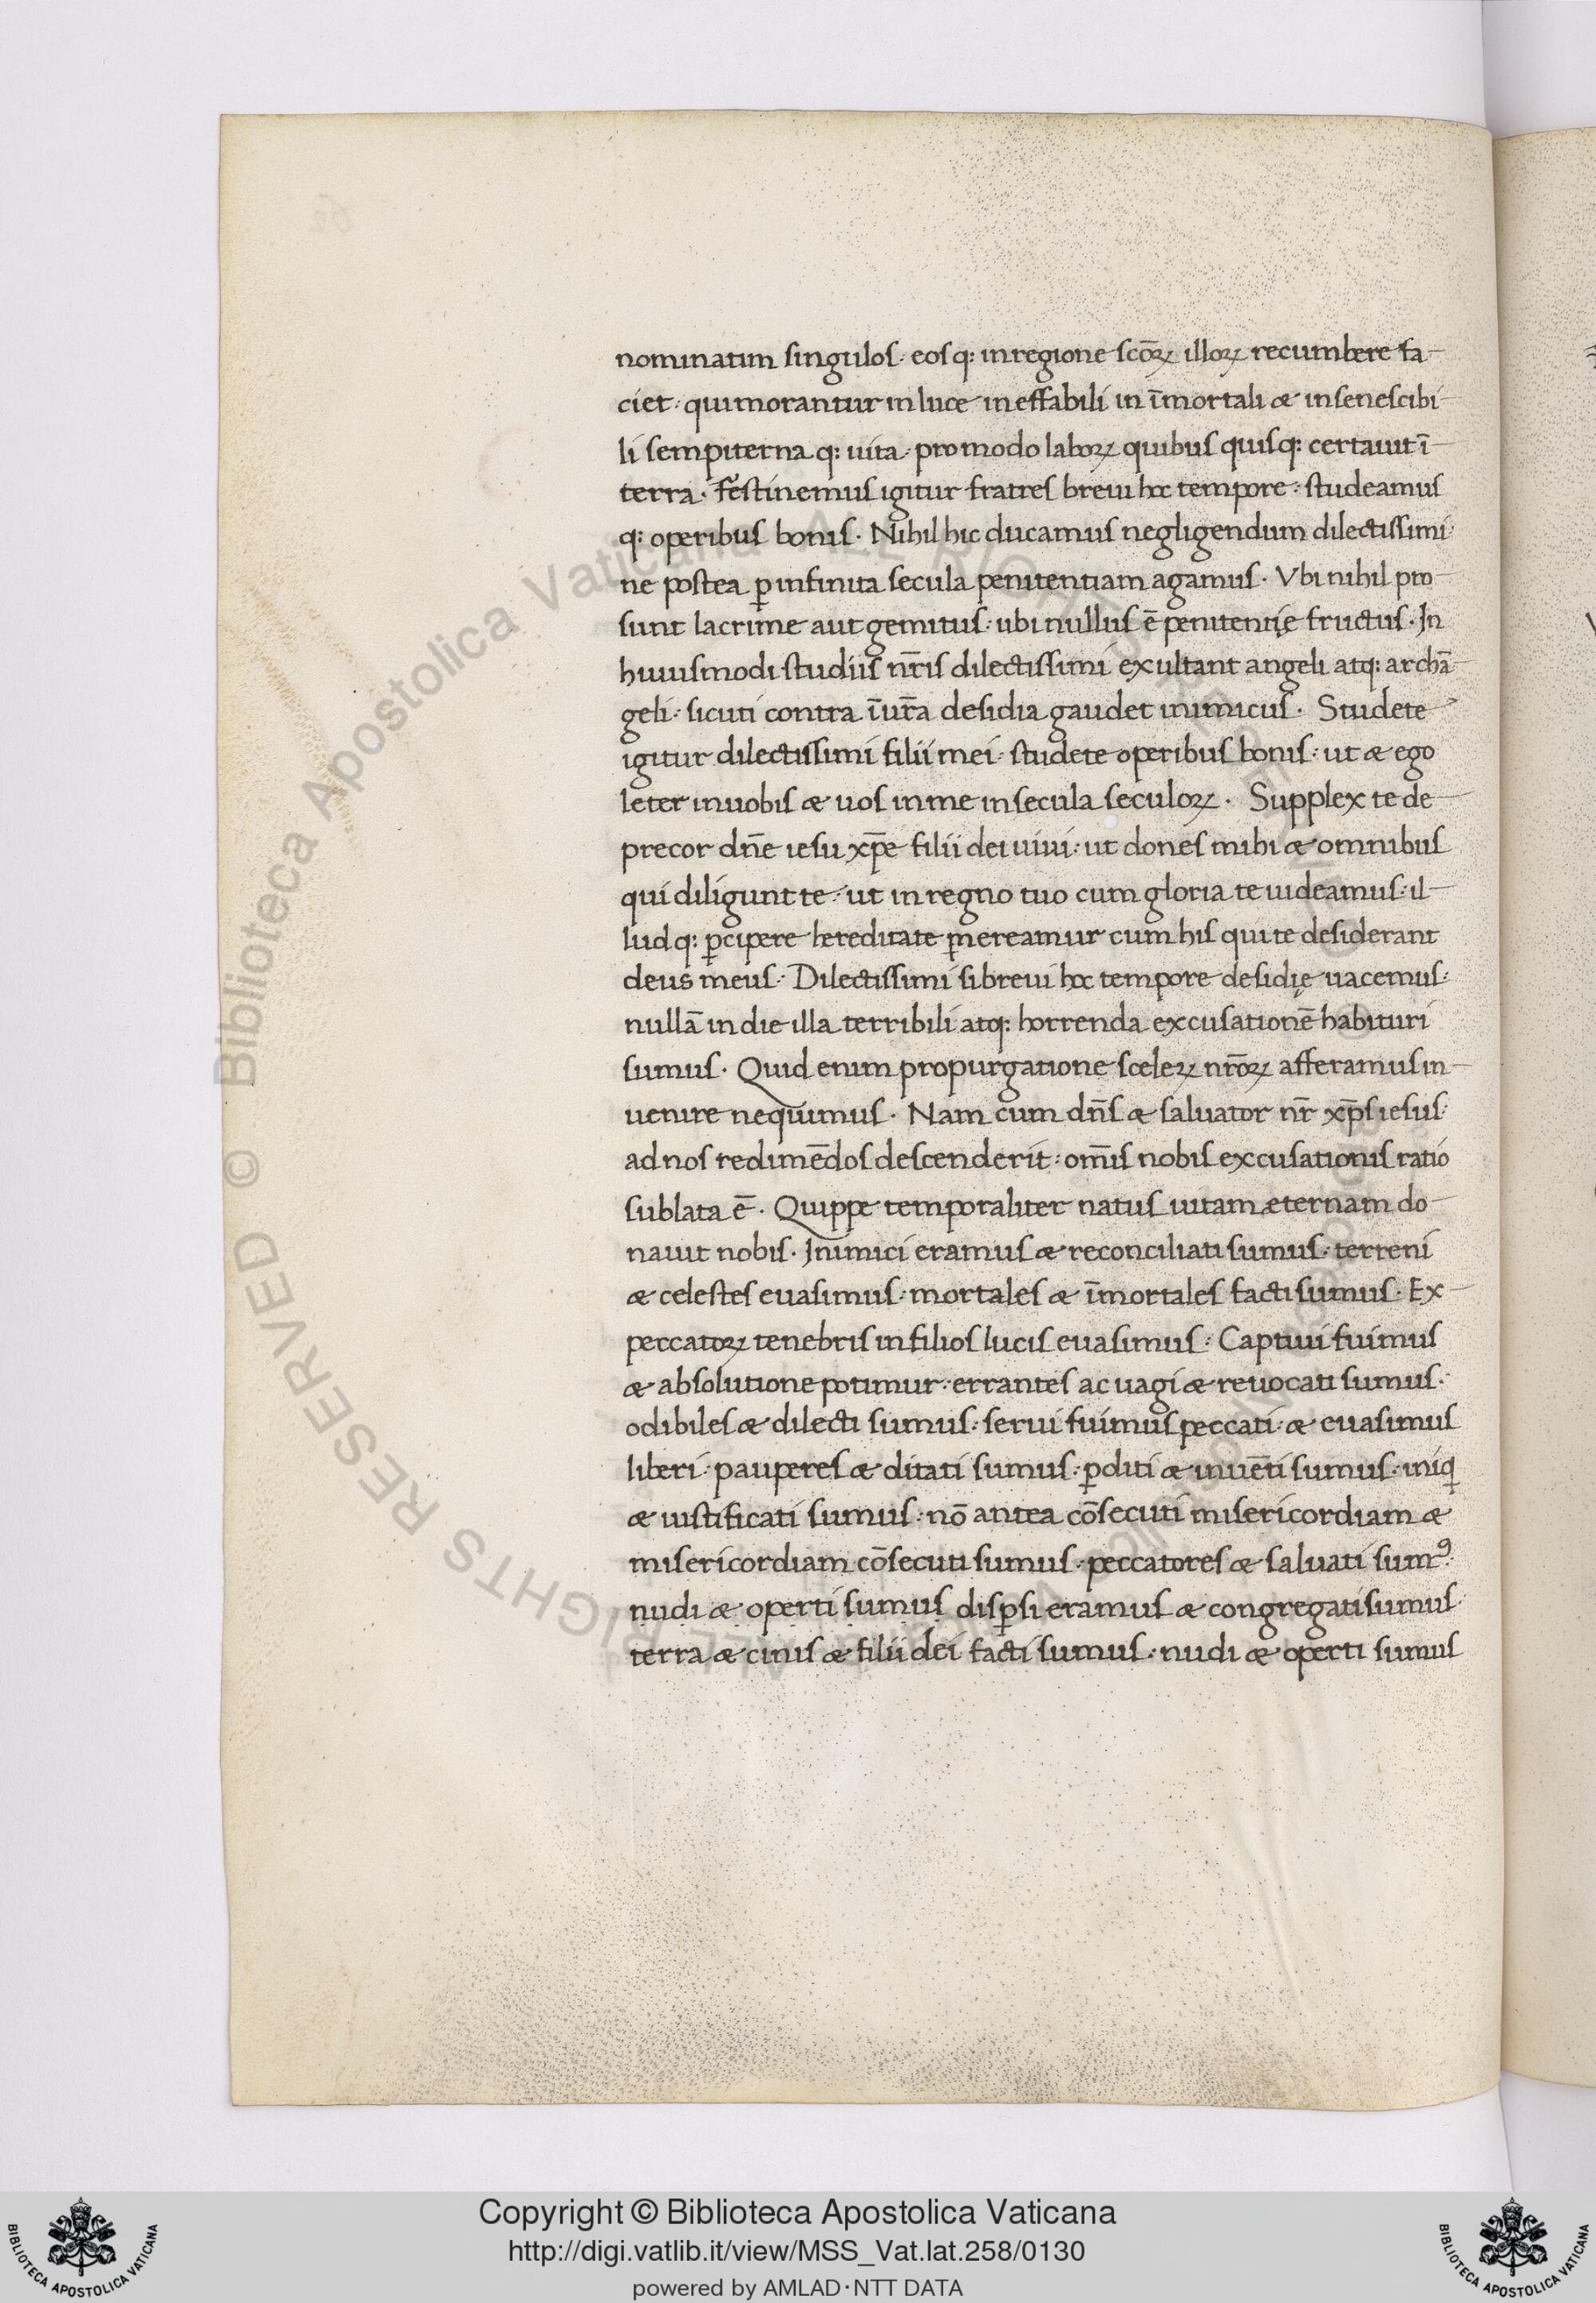 nominatim singulos· eosq: in regione scōꝝ illoꝝ recumbere fa-
ciet· qui morantur in luce ineffabili in īmortali & insenescibi-
li sempiterna q: uita· pro modo laboꝝ quibus quisq: certauit ī
terra· Festinemus igitur fratres breui hoc tempore· studeamus
q: operibus bonis· Nihil hic ducamus negligendum dilectissimi·
ne postea ꝑ infinita secula penitentiam agamus· Vbi nihil pro-
sunt lacrime aut gemitus· ubi nullus ē penitentię fructus· In
huiusmodi studiis nr̄is dilectissimi exultant angeli atq: archā-
geli· sicuti contra ī ur̄a desidia gaudet inimicus· Studete
igitur dilectissimi filii mei· studete operibus bonis· ut & ego
leter in uobis & uos in me in secula seculoꝝ· Supplex te de-
precor dn̄e iesu xp̄e filii dei uiui· ut dones mihi & omnibus
qui diligunt te· ut in regno tuo cum gloria te uideamus· il-
lud q: ꝑcipere hereditate ꝓmereamur cum his qui te desiderant
deus meus· Dilectissimi si breui hoc tempore desidię uacemus·
nullā in die illa terribili atq: horrenda excusationē habituri
sumus· Quid enim pro purgatione sceleꝝ nr̄oꝝ afferamus in-
uenire nequimus· Nam cum dn̄s & saluator nr̄ xp̄s iesus·
ad nos redimēdos descenderit· om̄is nobis excusationis ratio
sublata ē· Quippe temporaliter natus uitam æternam do-
nauit nobis· Inimici eramus & reconciliati sumus· terreni
& celestes euasimus· mortales & īmortales facti sumus· Ex
peccatoꝝ tenebris in filios lucis euasimus· Captiui fuimus
& absolutione potimur· errantes ac uagi & reuocati sumus·
odibiles & dilecti sumus· serui fuimus peccati· & euasimus
liberi· pauperes & ditati sumus· ꝑditi & inuēti sumus· iniq
& iustificati sumus· nō antea cōsecuti misericordiam &
misericordiam cōsecuti sumus· peccatores & saluati sumꝰ·
nudi & operti sumus disꝑsi eramus & congregati sumus·
terra & cinis & filii dei facti sumus· nudi & operti sumus
© Biblioteca Apostolica Vaticana ALL RIGHTS RESERVED
Copyright © Biblioteca Apostolica Vaticana
http://digi.vatlib.it/view/MSS_Vat.lat.258/0130
powered by AMLAD·NTT DATA
BIBLIOTECA APOSTOLICA VATICANA
BIBLIOTECA APOSTOLICA VATICANA